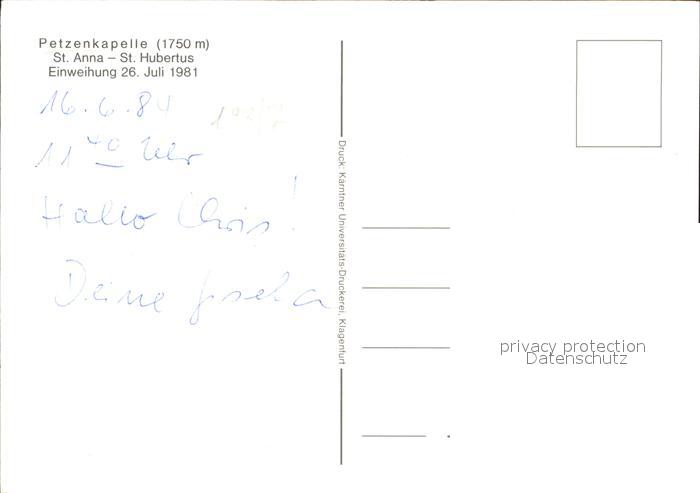 Petzenkapelle (1750 m)
St. Anna – St. Hubertus
Einweihung 26. Juli 1981
16.6.84
11 40 Uhr
Hallo Chris!
Deine
Druck: Kärntner Universitäts-Druckerei, Klagenfurt
privacy protection
Datenschutz